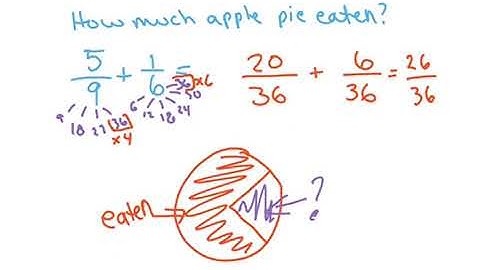 How much apple pie eaten?
5/9 + 1/6 =
9 18 27 36 x4
6 12 18 24 30 36 x6
20/36 + 6/36 = 26/36
eaten
?